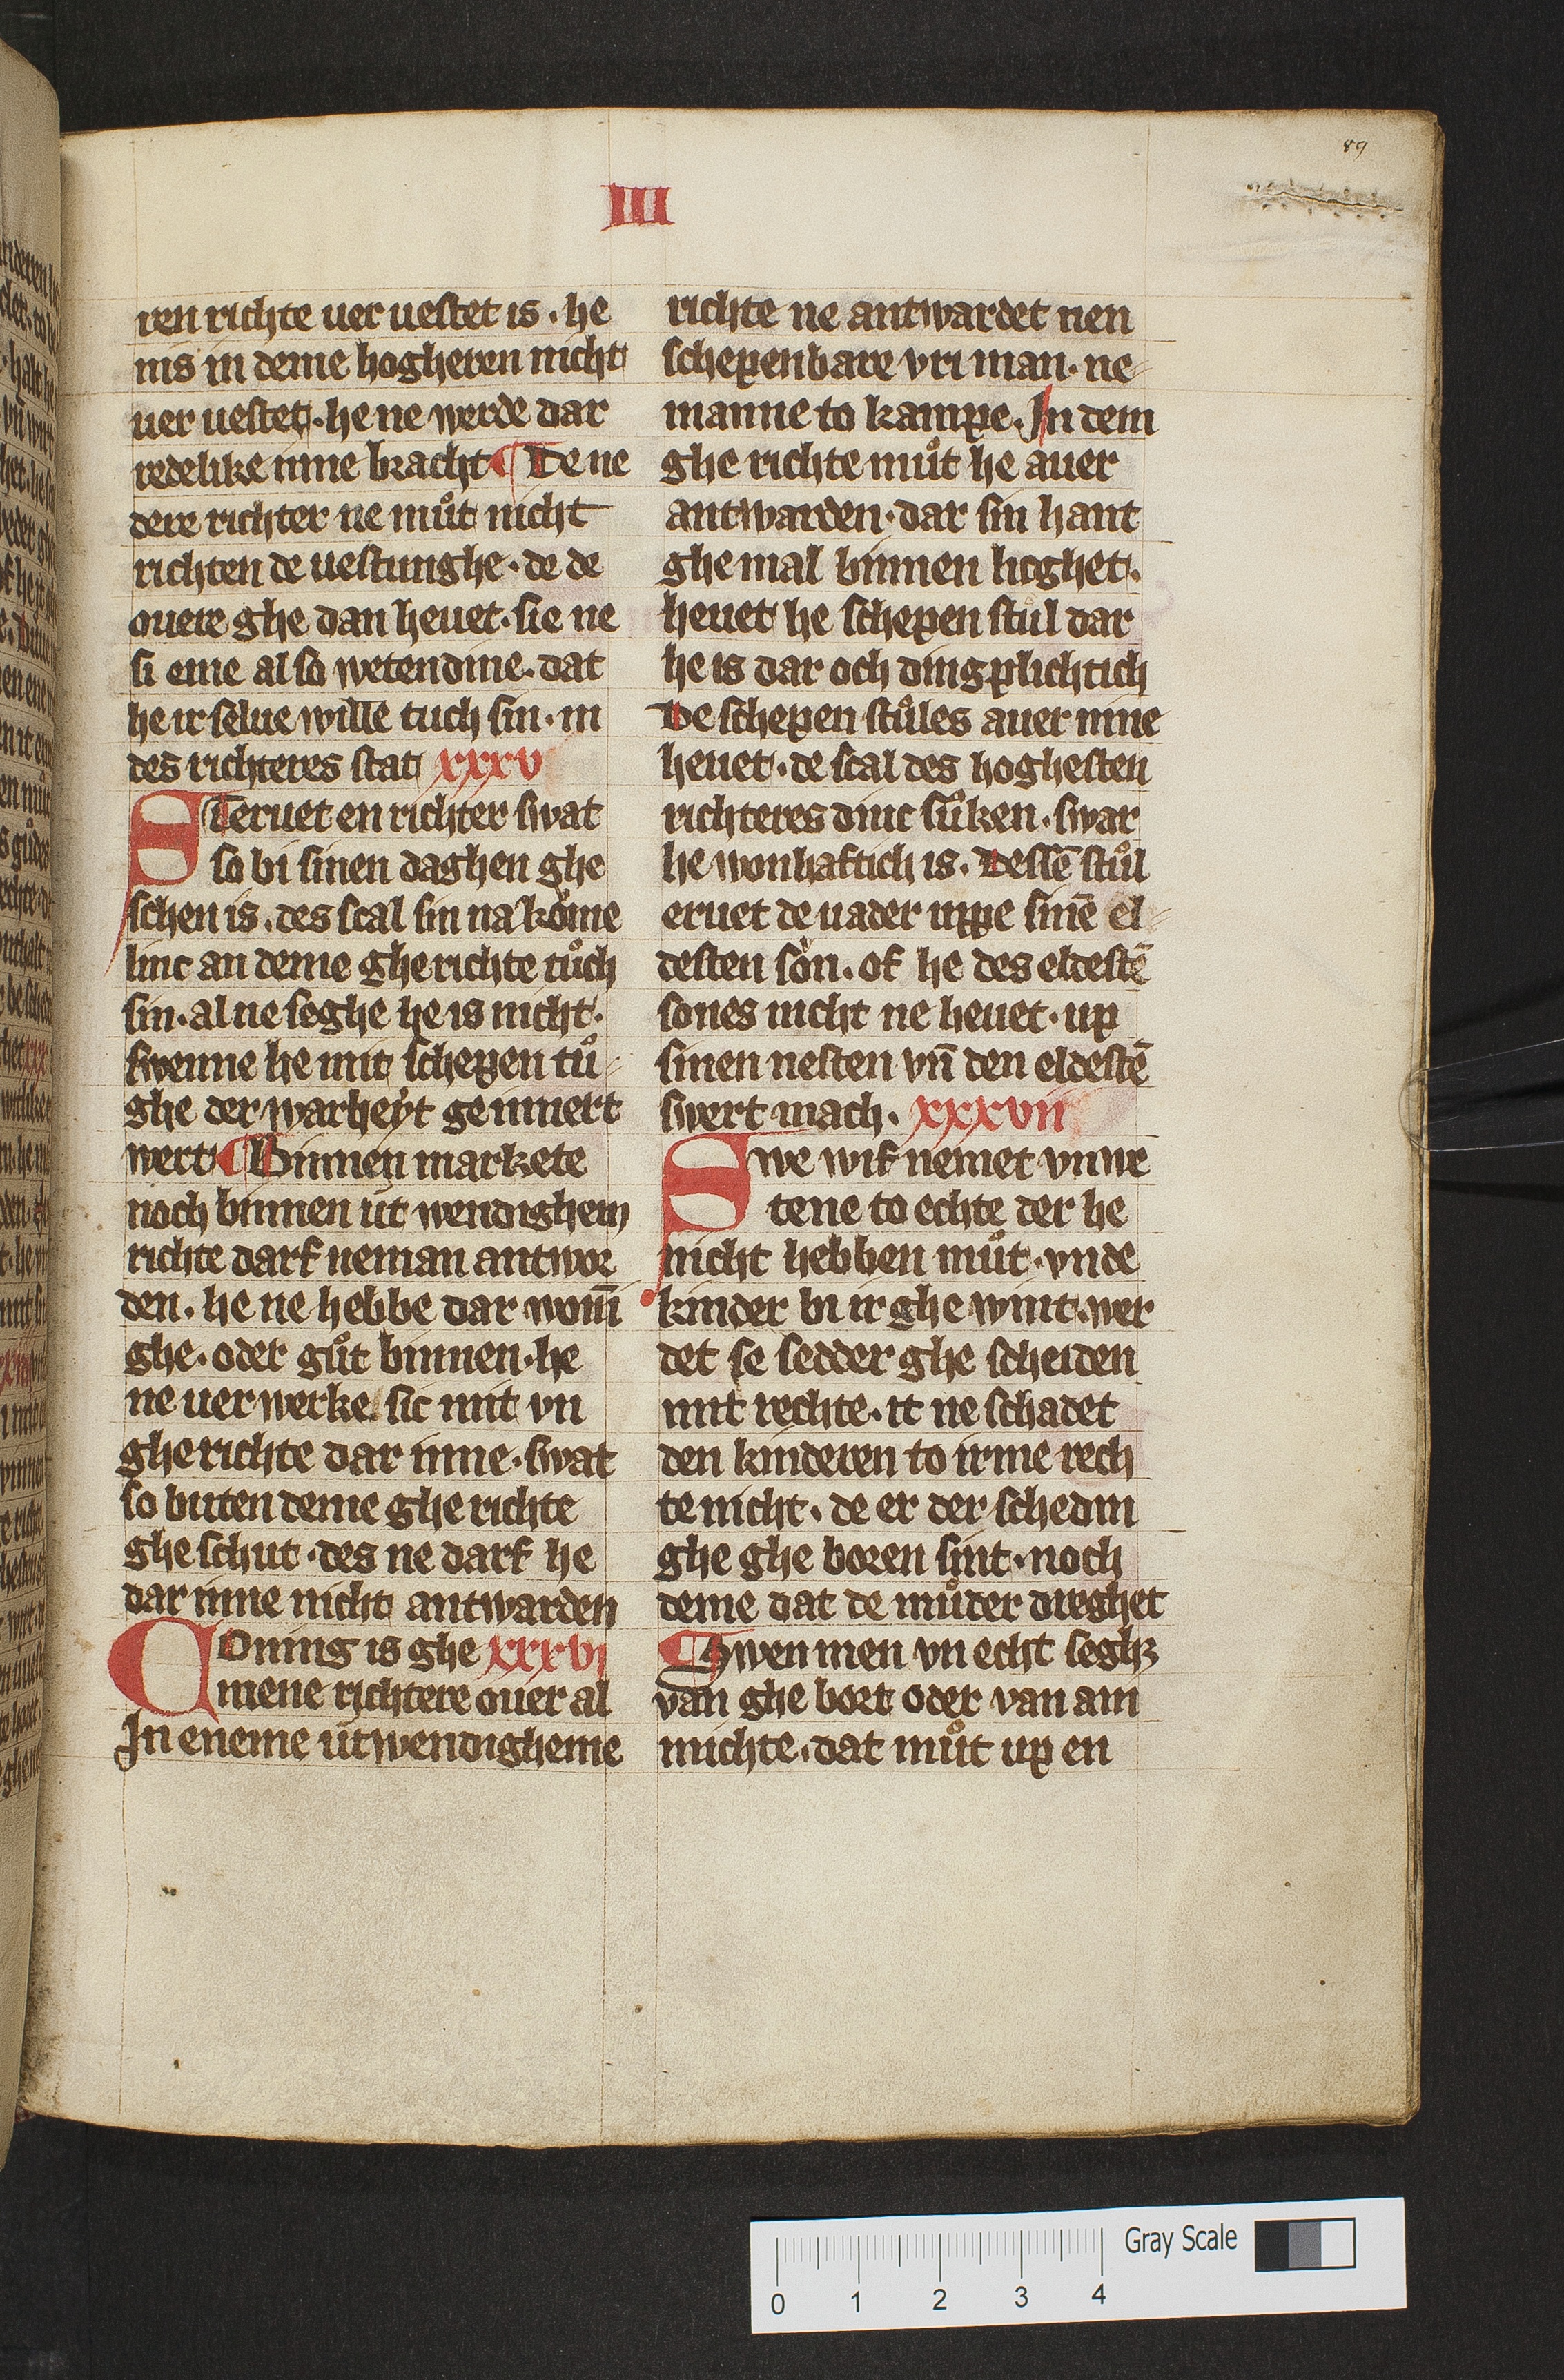 89
III
ren richte uer uestet is. he
nis in deme hogheren nicht
uer uestet. he ne werde dar
redelike inne bracht ¶ De ne
dere richter ne můt nicht
richten de uestunghe. de de
ouere ghe dan heuet. sie ne
si eme al so wetendine. dat
he ir selue wille tuch sin. in
des richteres stat xxxv
STeruet en richter swat
so bi sinen daghen ghe
schen is. des scal sin na kome
linc an deme ghe richte tůch
sin. al ne seghe he is nicht.
swenne he mit schepen tů-
ghe der warheyt geinnert
wert ¶ Binnen markete
noch binnen ut wendighem
richte darf neman antwor
den. he ne hebbe dar woni̅
ghe. oder gůt binnen. he
ne uer werke sic mit vn
ghe richte dar inne. swat
so buten deme ghe richte
ghe schut. des ne darf he
dar inne nicht antwarden
Coning is ghe xxxvi
mene richtere ouer al
In eneme utwendigheme
richte ne antwardet nen
schepenbare vri man. ne-
manne to kampe. In dem
ghe richte můt he auer
antwarden. dar sin hant
ghe mal binnen lioghet.
heuet he schepen stůl dar
he is dar och dingplichtich
De schepen stůles auer nine
heuet. de scal des hoghesten
richteres dinc sůken. swar
he wonhaftich is. Desse̅ stůl
eruet de uader uppe sine̅ el-
desten son. of he des eldeste̅
sones nicht ne heuet. up
sinen nesten vn̅ den eldeste̅
swert mach. xxxvii
Swe wif nemet vnwe
tene to echte der he
nicht hebben můt. vnde
kinder bi ir ghe wint. wer
det se sedder ghe scheiden
mit rechte. it ne schadet
den kinderen to irme rech
te nicht. de er der schedin
ghe ghe boren sint. noch
deme dat de můder dreghet
¶ Swen men vn echt seghꝫ
van ghe bort oder van am
michte. dat můt up en
Gray Scale
0 1 2 3 4